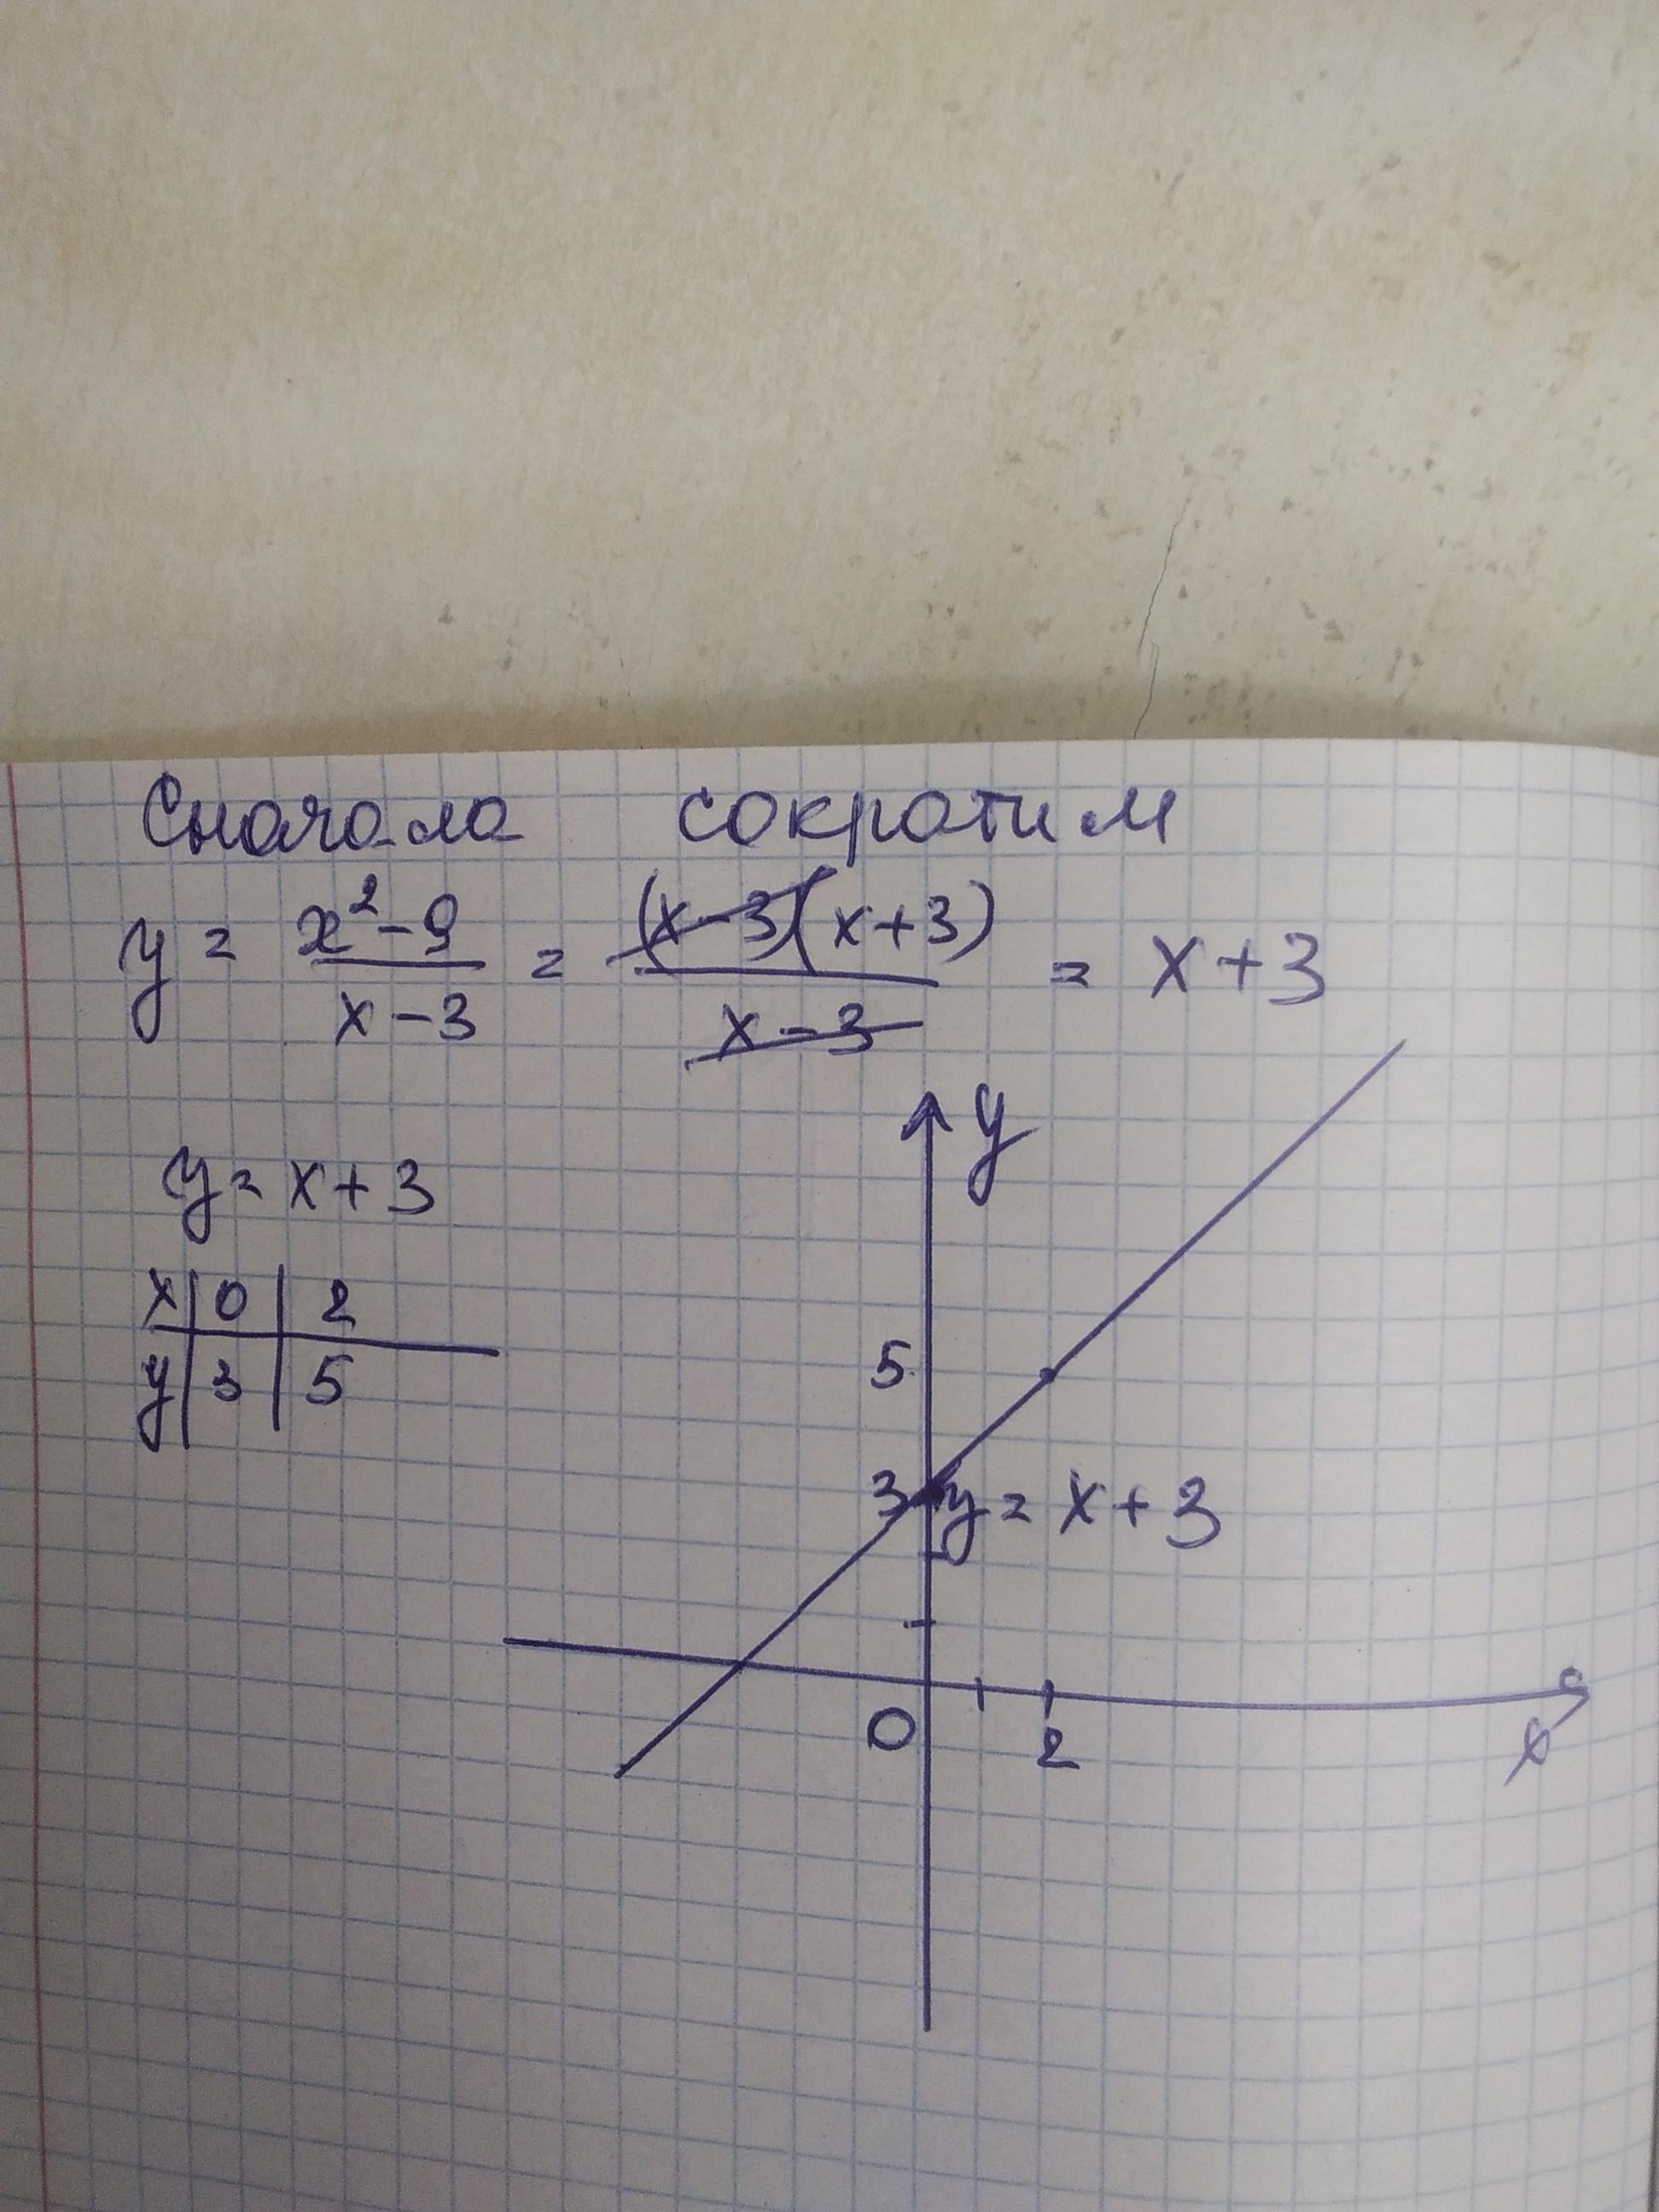 Сначала сократим
y = x² - 9 / x - 3 = (x - 3)(x + 3) / x - 3 = x + 3
y = x + 3
x | 0 | 2
y | 3 | 5
y
5
3
y = x + 3
0
2
x